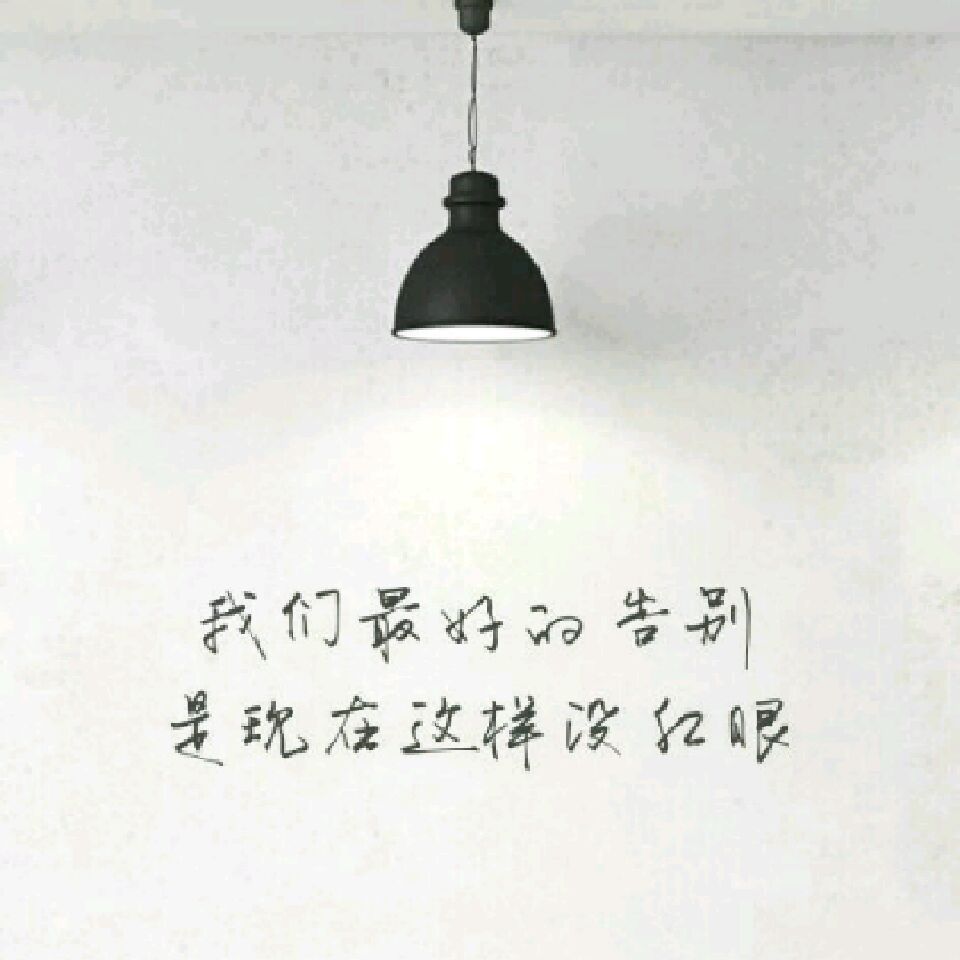 我们最好的告别
是现在这样没红眼